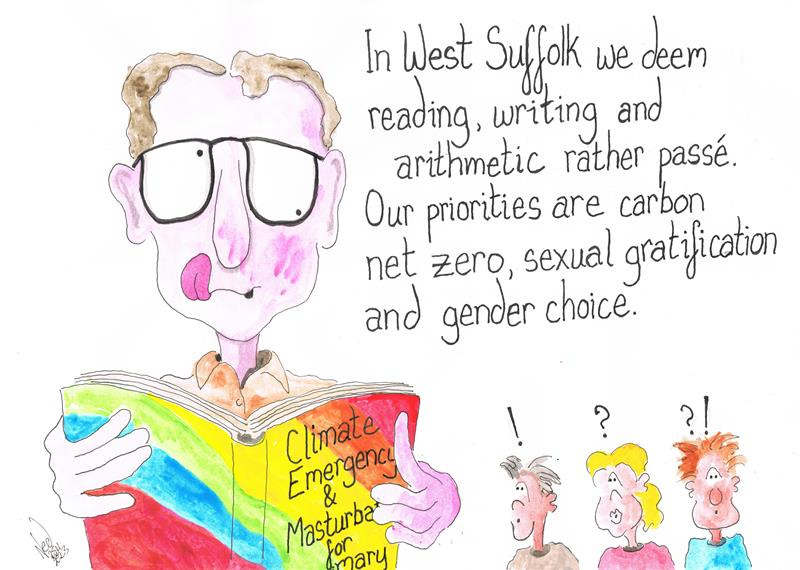 In West Suffolk we deem
reading, writing and
arithmetic rather passé.
Our priorities are carbon
net zero, sexual gratification
and gender choice.
! ? ?!
Climate
Emergency
&
Masturba
for
mary